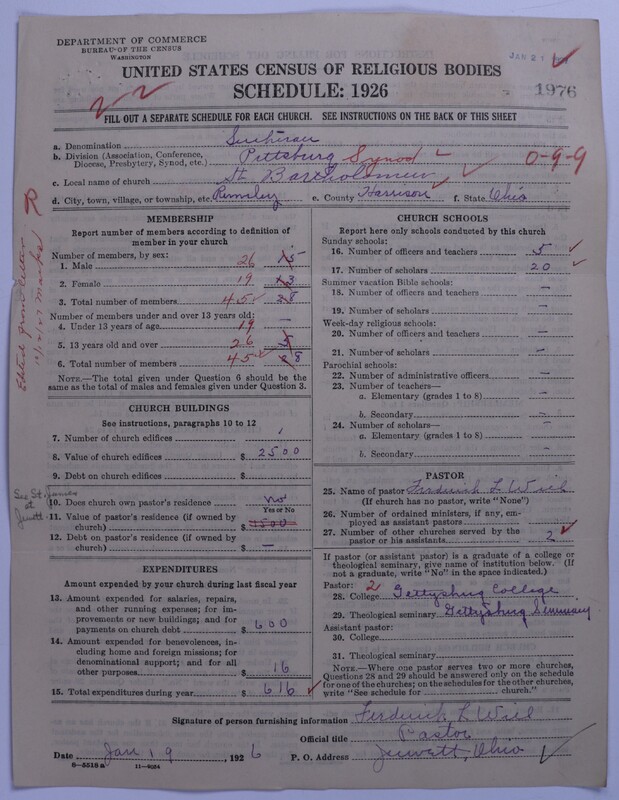 DEPARTMENT OF COMMERCE
BUREAU OF THE CENSUS
WASHINGTON
JAN 21
UNITED STATES CENSUS OF RELIGIOUS BODIES
SCHEDULE: 1926
1976
22
FILL OUT A SEPARATE SCHEDULE FOR EACH CHURCH. SEE INSTRUCTIONS ON THE BACK OF THIS SHEET
a. Denomination Lutheran
b. Division (Association, Conference, Diocese, Presbytery, Synod, etc.) Pittsburg Synod 0-9-9
c. Local name of church St. Bartholomew
d. City, town, village, or township, etc. Rumley e. County Harrison f. State Ohio
MEMBERSHIP
Report number of members according to definition of
member in your church
Number of members, by sex:
1. Male 26 15
2. Female 19 13
3. Total number of members 45 28
Number of members under and over 13 years old:
4. Under 13 years of age 19 —
5. 13 years old and over 26
6. Total number of members 45 28
NOTE.—The total given under Question 6 should be
same as the total of males and females given under Question 3.
CHURCH BUILDINGS
See instructions, paragraphs 10 to 12
7. Number of church edifices 1
8. Value of church edifices $ 2500
9. Debt on church edifices $ —
See St. James
at
Jewett
10. Does church own pastor's residence No
Yes or No
11. Value of pastor's residence (if owned by
church) $
12. Debt on pastor's residence (if owned by
church) $ —
EXPENDITURES
Amount expended by your church during last fiscal year
13. Amount expended for salaries, repairs,
and other running expenses; for im-
provements or new buildings; and for
payments on church debt $ 600
14. Amount expended for benevolences, in-
cluding home and foreign missions; for
denominational support; and for all
other purposes $ 16
15. Total expenditures during year $ 616
CHURCH SCHOOLS
Report here only schools conducted by this church
Sunday schools:
16. Number of officers and teachers 5
17. Number of scholars 20
Summer vacation Bible schools:
18. Number of officers and teachers —
19. Number of scholars —
Week-day religious schools:
20. Number of officers and teachers —
21. Number of scholars —
Parochial schools:
22. Number of administrative officers —
23. Number of teachers—
a. Elementary (grades 1 to 8) —
b. Secondary —
24. Number of scholars—
a. Elementary (grades 1 to 8) —
b. Secondary —
PASTOR
25. Name of pastor Ferderick L. Wiil
(If church has no pastor, write "None")
26. Number of ordained ministers, if any, em-
ployed as assistant pastors
27. Number of other churches served by the
pastor or his assistants 2
If pastor (or assistant pastor) is a graduate of a college or
theological seminary, give name of institution below. (If
not a graduate, write "No" in the space indicated.)
Pastor: 2
28. College Gettysburg College
29. Theological seminary Gettysburg Seminary
Assistant pastor:
30. College
31. Theological seminary
NOTE.—Where one pastor serves two or more churches,
Questions 28 and 29 should be answered only on the schedule
for one of the churches; on the schedules for the other churches,
write "See schedule for church."
Signature of person furnishing information Ferderick L. Wiil
Official title Pastor
Date Jan 19, 1926 P. O. Address Jewett, Ohio
8—5518 a 11—9054